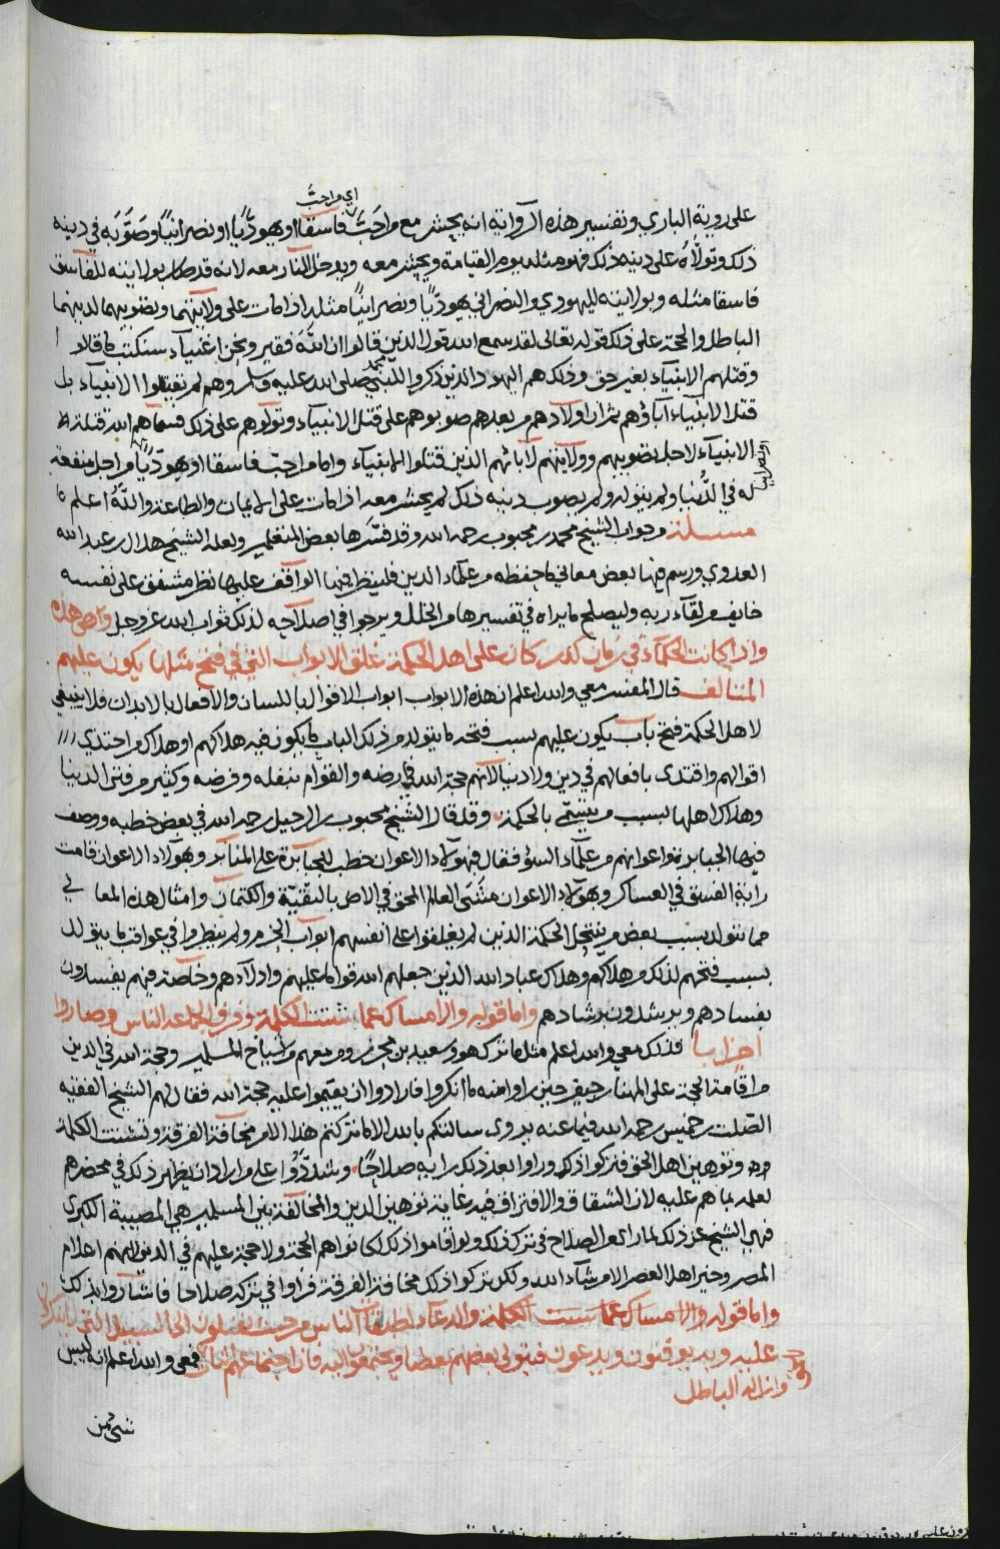 اي من احبَّ
على روية الباري وتفسير هذه الرواية انه يحشر مع من احَبَّ فاسقا او يهوديًا او نصرانيًا وصَوَّبَه في دينه
ذلك وتولاهُ على دينه ذلك فهو مثله يوم القيامة ويحشر معه ويدخل النار معه لانه قد صار بولايته للفاسق
فاسقا مثله وبولايته لليهودي والنصراني يهوديًا ونصرانيًا مثله اذا مات على ولايتهما وتصويبهما لدينهما
الباطل والحجة على ذلك قوله تعالى لقد سمع الله قول الذين قالوا ان الله فقير ونحن اغنياء سنكتب ما قالوا
وقتلهم الانبياء بغير حق وذلك هم اليهود الذين ذكروا للنبي محمد صلى الله عليه وسلم وهم لم يقتلوا الانبياء بل
قتل الانبياء آباؤهم ثم ان اولادهم من بعدهم صوبوهم على قتل الانبياء وتولوهم على ذلك فسماهم الله قتلة
الانبياء لاجل تصويبهم وولايتهم لآبائهم الذين قتلوا الانبياء واما من احبّ فاسقا او يهوديًا من اجل منفعة
او نصرانيا
له في الدُّنيا ولم يتوله ولم يصوب دينه ذلك لم يحشر معه اذا مات على الايمان والطاعة واللّهُ اعلم
مسئلة من جواب الشيخ محمد بن محبوب رحمه الله وقد فسَّرها بعض المتعلمين ولعله الشيخ هلال بن عبد الله
العدوي ورسم فيها بعض معاني ما حفظه من علماء الدين فلينظر فيها الواقف عليها نظر مشفق على نفسه
خايف من لقاء ربه وليصلح ما يراه في تفسيرها من الخلل ويرجوا في اصلاحه لذلك ثواب الله عز وجل وهي هذه
واذا كانت الحكماء في زمان كدر كان على اهل الحكمة غلق الابواب التي في فتح مثلها يكون عليهم
المتالف قال المفسر معي والله اعلم ان هذه الابواب ابواب الاقوال باللسان والافعال بالابدان فلا ينبغي
لاهل الحكمة فتح باب يكون عليهم بسبب فتحه ما يتولد من ذلك الباب ما يكون فيه هلاكهم او هلاك من احتذى
اقوالهم واقتدى بافعالهم في دين او دنيا لانهم حجة الله في ارضه والقوام بنفله وفرضه وكثير من فتن الدنيا
وهلاك اهلها بسبب من يتسمّى بالحكمة وقد قال الشيخ محبوب بن الرحيل رحمه الله في بعض خطبه ووصف
فيها الجبابرة واعوانهم من علماء السوء فقال فبهولاء الاعوان خطب للجبابرة على المنابر وبهولاء الاعوان قامت
راية الفسق في العساكر وبهولاء الاعوان مشَى العالم المحق في الارض بالتقيّة والكتمان وامثال هذه المعاني
مما تتولد بسبب بعض من ينتحل الحكمة الذين لم يغلقوا على انفسهم ابواب الحزم ولم ينظروا في عواقب ما يتولد
بسبب فتحهم لذلك من هلاكهم وهلاك عباد الله الذين جعلهم الله قواما عليهم وادلاءهم وخاصة فيهم يفسدون
بفسادهم ويرشدون برشادهم واما قوله والامساك عما شتت الكلمة وفرق الجماعة الناس وصاروا
احزابا فذلك معي والله اعلم مثل ما ترك هو وسعيد بن محرز ومن معهم من اشياخ المسلمين وحجة الله في الدين
من اقامة الحجة على المهنا بن جيفر حين راوا منه ما انكروا فارادوا ان يقيموا عليه حجة الله فقال لهم الشيخ الفقيه
الصَّلت بن خميس رحمه الله فيما عنه يروى سالتكم بالله الا ما تركتم هذا الامر مخافة الفرقة وتشتت الكلمة
وتوهين اهل الحق فتركوا ذلك وراوا بعد ذلك رايه صلاحًا وشدَّدُوا على من اراد ان يظهر ذلك في محضرهم
لعلمه بما هم عليه لان الشقاق والافتراق فيه غاية توهين الدين والمخالفة بين المسلمين هي المصيبة الكبرى
فهى الشيخ عن ذلك لما راى من الصلاح في ترك ذلك ولو اقاموا ذلك لكانوا هم الحجة ولا حجة عليهم في الدين لانهم اعلام
المصر وخير اهل العصر الا من شاء الله ولكن تركوا ذلك مخافة الفرقة فراوا في تركه صلاحا فاشاروا بذلك
واما قوله والامساك عما شتت الكلمة والدعاء لطبقات الناس من حيث يقبلون الى السبيل التي لا ينكرون
عليه وبه يوقنون ويدعون فيتولى بعضهم بعضا ويجتمعوا اليه فان اجتماعهم ثبات فمعي والله اعلم انه ليس
وازالة الباطل
شي من